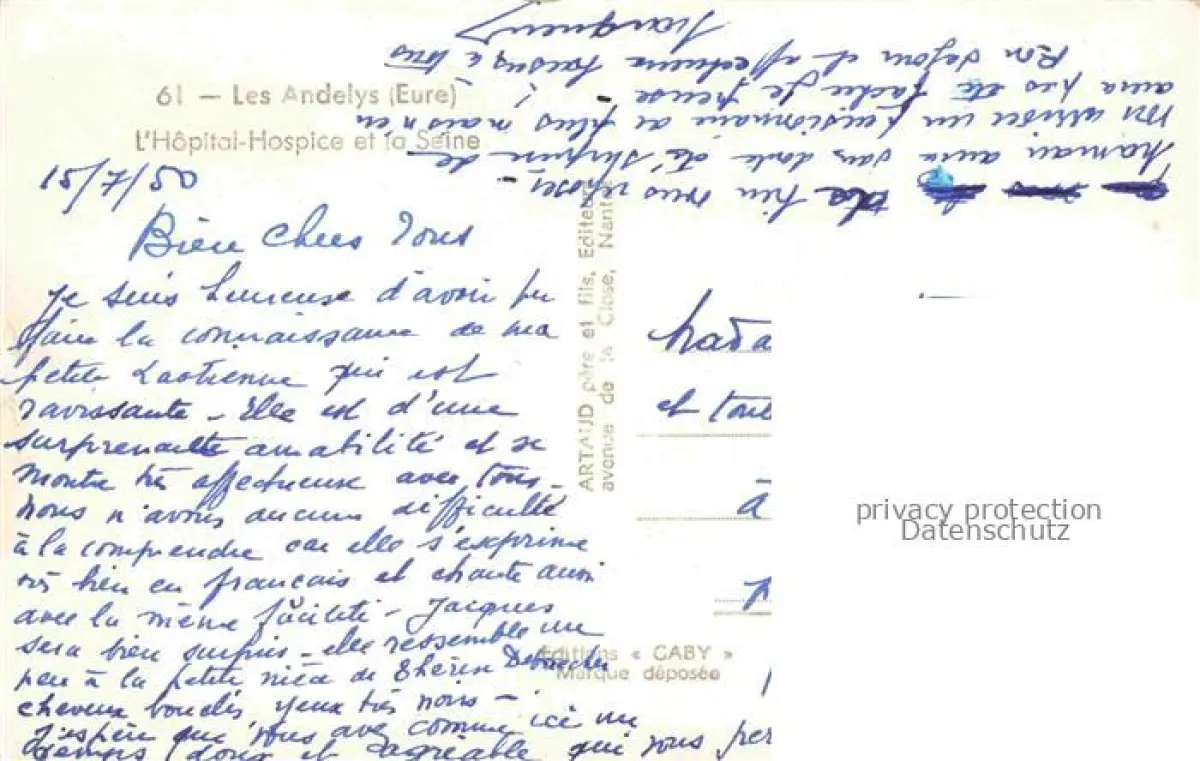 61 — Les Andelys (Eure)
L'Hôpital-Hospice et la Seine
15/7/50
Bien Chers Tous
Je suis heureuse d'avoir pu
faire la connaissance de ma
petite Laotienne qui est
ravissante - Elle est d'une
surprenante amabilité et se
montre très affectueuse avec tous -
nous n'avons aucune difficulté
à la comprendre car elle s'exprime
très bien en français et chante aussi
avec la même facilité - Jacques
sera bien surpris - elle ressemble un
peu à la petite nièce de
cheveux bouclés, yeux très noirs -
J'espère que vous avez comme ici un
temps doux et agréable qui vous per
bien vous reposer -
maman aura sans doute été surprise de
un pensionnaire de plus mais n'en
aura pas été fâchée je pense
Bon séjour et affectueux baisers à tous
ARTAUD père et fils, Editeurs
avenue de la Close, Nantes
Editions « GABY »
Marque déposée
Mada
et tous
à
privacy protection
Datenschutz